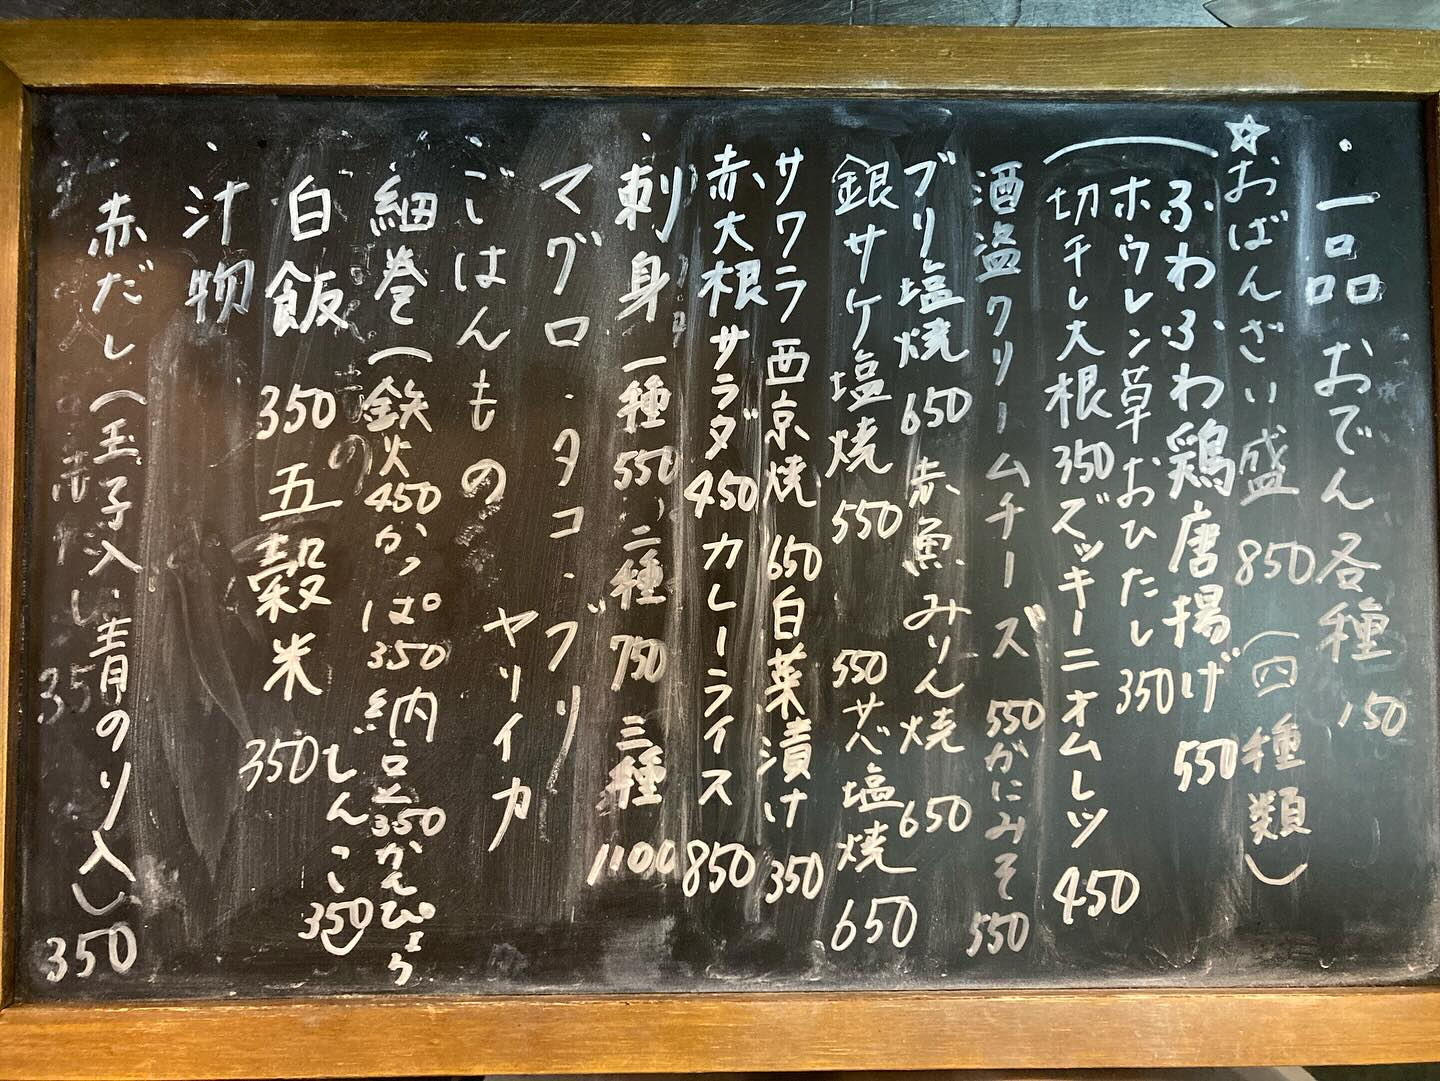 ・一品 おでん各種 150
☆おばんざい盛 850 (四種類)
ふわふわ鶏唐揚げ 550
ホウレン草おひたし 350
切干し大根 350 ズッキーニオムレツ 450
酒盗クリームチーズ 550 かにみそ 550
ブリ塩焼 650 赤魚みりん焼 650
銀サケ塩焼 550 サバ塩焼 650
サワラ西京焼 650 白菜漬け 350
赤大根サラダ 450 カレーライス 850
・刺身 一種 550、二種 750 三種 1100
マグロ・タコ・ブリ
ヤリイカ
・ごはんもの
細巻(鉄火 450 かっぱ 350 納豆 350 かんぴょう
しんこ 350)
白飯 350 五穀米 350
・汁物
赤だし(玉子入い・青のり入) 350